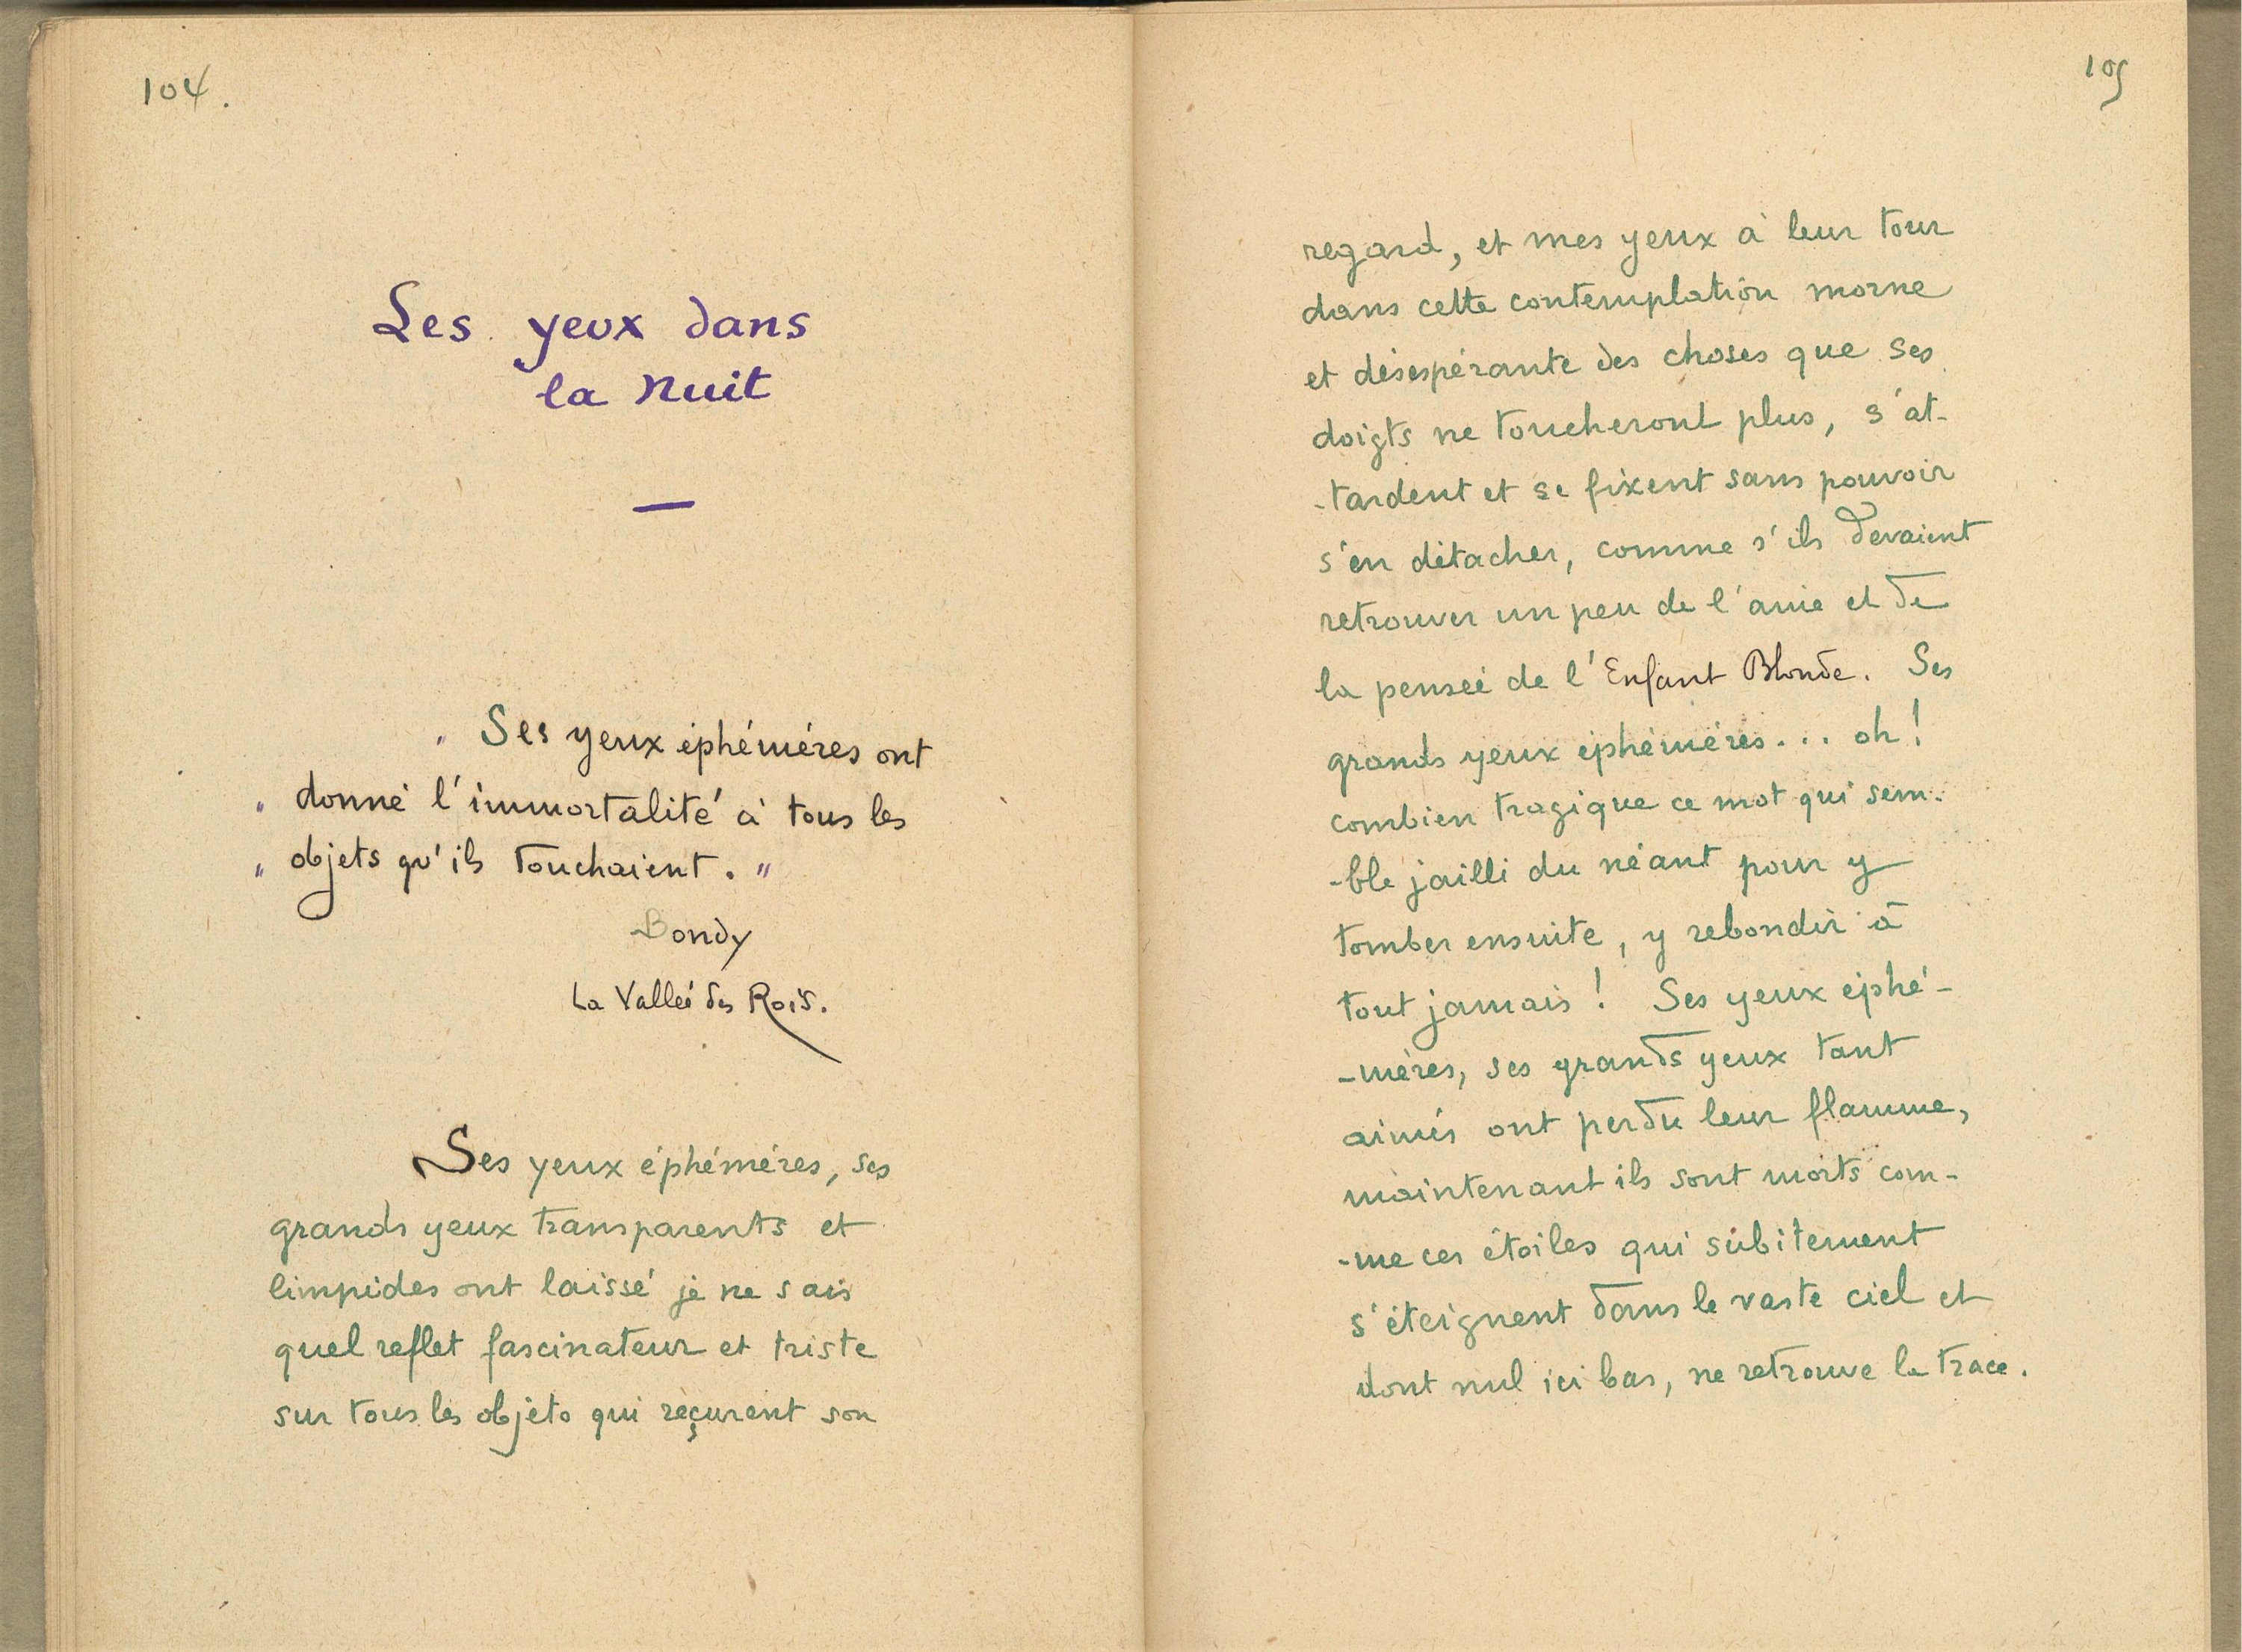 104.
Les yeux dans
la Nuit
—
" Ses yeux éphémères ont
" donné l'immortalité à tous les
" objets qu'ils touchaient. "
Bondy
La Vallée des Rois.
Ses yeux éphémères, ses
grands yeux transparents et
limpides ont laissé je ne sais
quel reflet fascinateur et triste
sur tous les objets qui reçurent son
105
regard, et mes yeux à leur tour
dans cette contemplation morne
et désespérante des choses que ses
doigts ne toucheront plus, s'at-
-tardent et se fixent sans pouvoir
s'en détacher, comme s'ils devaient
retrouver un peu de l'amie et de
la pensée de l'Enfant Blonde. Ses
grands yeux éphémères... oh!
combien tragique ce mot qui sem-
-ble jailli du néant pour y
tomber ensuite, y rebondir à
tout jamais! Ses yeux éphé-
-mères, ses grands yeux tant
aimés ont perdu leur flamme,
maintenant ils sont morts com-
-me ces étoiles qui subitement
s'éteignent dans le vaste ciel et
dont nul ici bas, ne retrouve la trace.